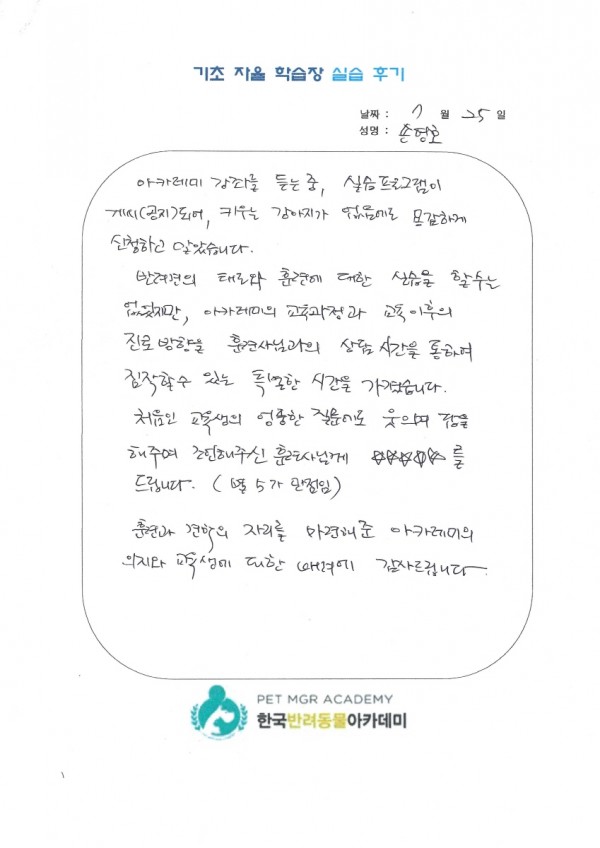 기초 자율 학습장 실습 후기
날짜 : 7 월 25 일
성명 : 손영호
아카데미 강좌를 듣는 중, 실습프로그램이
게시(공지)되어, 키우는 강아지가 없음에도 용감하게
신청하고 말았습니다.
반려견의 태도와 훈련에 대한 실습을 할수는
없었지만, 아카데미의 교육과정과 교육이후의
진로방향을 훈련사님과의 상담시간을 통하여
짐작할수 있는 특별한 시간을 가졌습니다.
처음인 교육생의 엉뚱한 질문에도 웃으며 답을
해주며 조언해주신 훈련사님께 ☆☆☆☆☆를
드립니다. (별 5가 만점임)
훈련과 견학의 자리를 마련해준 아카데미의
의지와 교육생에 대한 배려에 감사드립니다.
PET MGR ACADEMY
한국반려동물아카데미